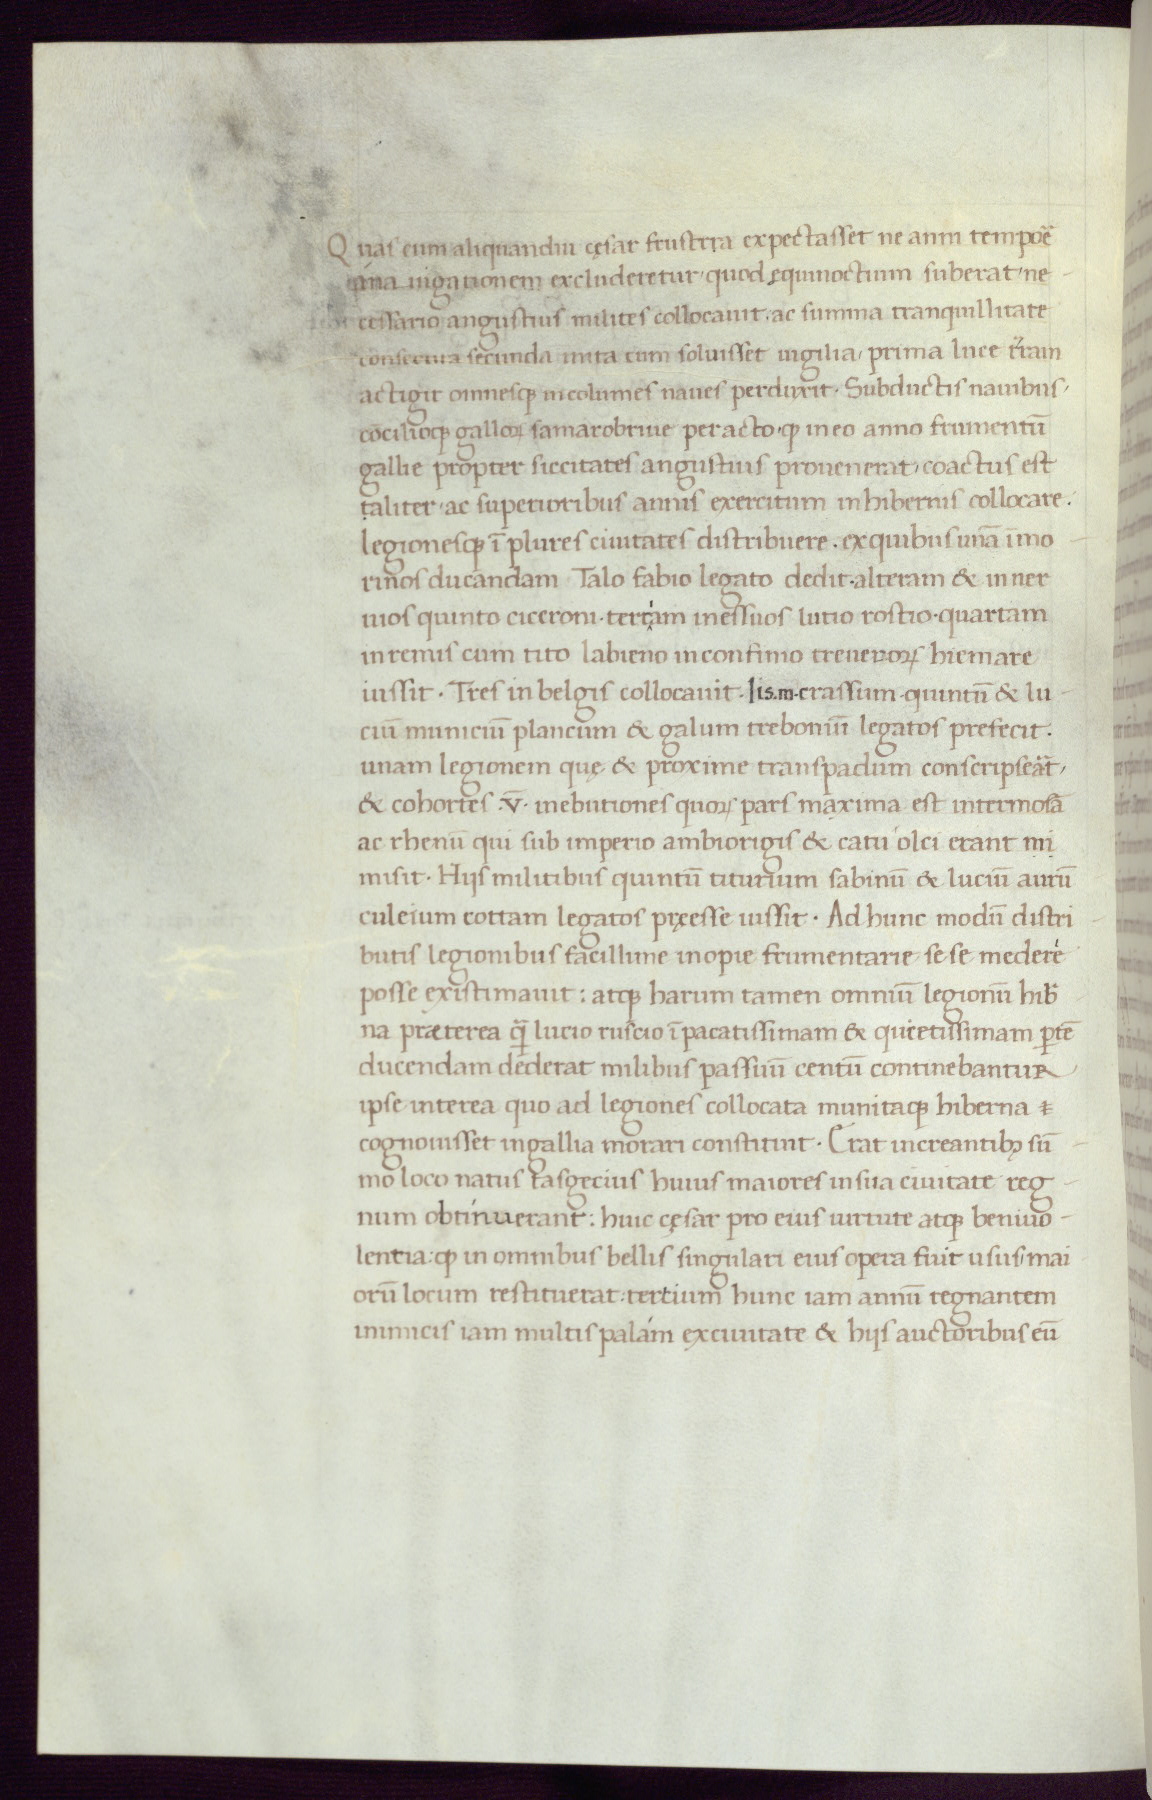 Quas cum aliquandiu cęsar frustra expectasset ne anni tempore᷑
a uigationem excluderetur, quod ęquinoctium suberat, ne-
cessario angustius milites collocauit. ac summa tranquillitate
consecuta secunda inita cum soluisset uigilia, prima luce t̃ram
actigit omnesqꝫ incolumes naues perduxit. Subductis nauibus,
cōcilioqꝫ galloꝝ samarobriue peracto, qꝫ in eo anno frumentū
gallie propter siccitates angustius prouenerat, coactus est
taliter, ac superioribus annis exercitum in hibernis collocare.
legionesqꝫ ī plures ciuitates distribuere. ex quibus unā ī mo-
rinos ducendam Talo fabio legato dedit. alteram & in ner
uios quinto ciceroni. tertiam in essuos lutio rostio. quartam
in remis cum tito labieno in confinio treueroꝝ hiemare
iussit. Tres in belgis collocauit. Iis .m. crassum. quintū & lu-
ciū municiū plancum & galum treboniū legatos prefecit.
unam legionem quę & proxime transpadum conscripseāt,
& cohortes .v̄. in ebutiones quoꝝ pars maxima est inter mosā
ac rhenū qui sub imperio ambiorigis & catuolci erant mi
misit. Hijs militibus quintū titurium sabinū & luciū aurū
culeium cottam legatos pręesse iussit. Ad hunc modū distri-
butis legionibus facillime inopie frumentarie sese mederé
posse existimauit: atqꝫ harum tamen omniū legionū hib̃
na præterea q̃ lucio ruscio ī pacatissimam & quietissimam ꝑtē
ducendam dederat milibus passuū centū continebantur
ipse interea quo ad legiones collocata munitaqꝫ hiberna ⁊
cognouisset in gallia morari constituit. Erat in creantibꝫ sū-
mo loco natus tasgecius huius maiores in sua ciuitate reg-
num obtinuerant: huic cęsar pro eius uirtute atqꝫ beniuo-
lentia: qꝫ in omnibus bellis singulari eius opera fuit usus, mai
orū locum restituerat. tertium hunc iam annū regnantem
inimicis iam multis palám ex ciuitate & hijs auctoribus eū